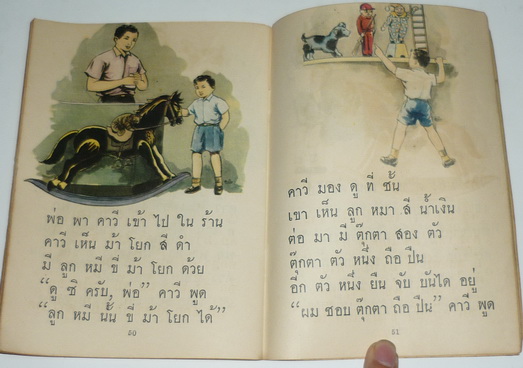 พ่อ พา คาวี เข้า ไป ใน ร้าน
คาวี เห็น ม้า โยก สี ดำ
มี ลูก หมี ขี่ ม้า โยก ด้วย
“ดู ซิ ครับ, พ่อ” คาวี พูด
“ลูก หมี นั้น ขี่ ม้า โยก ได้”
50
คาวี มอง ดู ที่ ชั้น
เขา เห็น ลูก หมา สี น้ำเงิน
ต่อ มา มี ตุ๊กตา สอง ตัว
ตุ๊กตา ตัว หนึ่ง ถือ ปืน
อีก ตัว หนึ่ง ยืน จับ บันได อยู่
“ผม ชอบ ตุ๊กตา ถือ ปืน” คาวี พูด
51